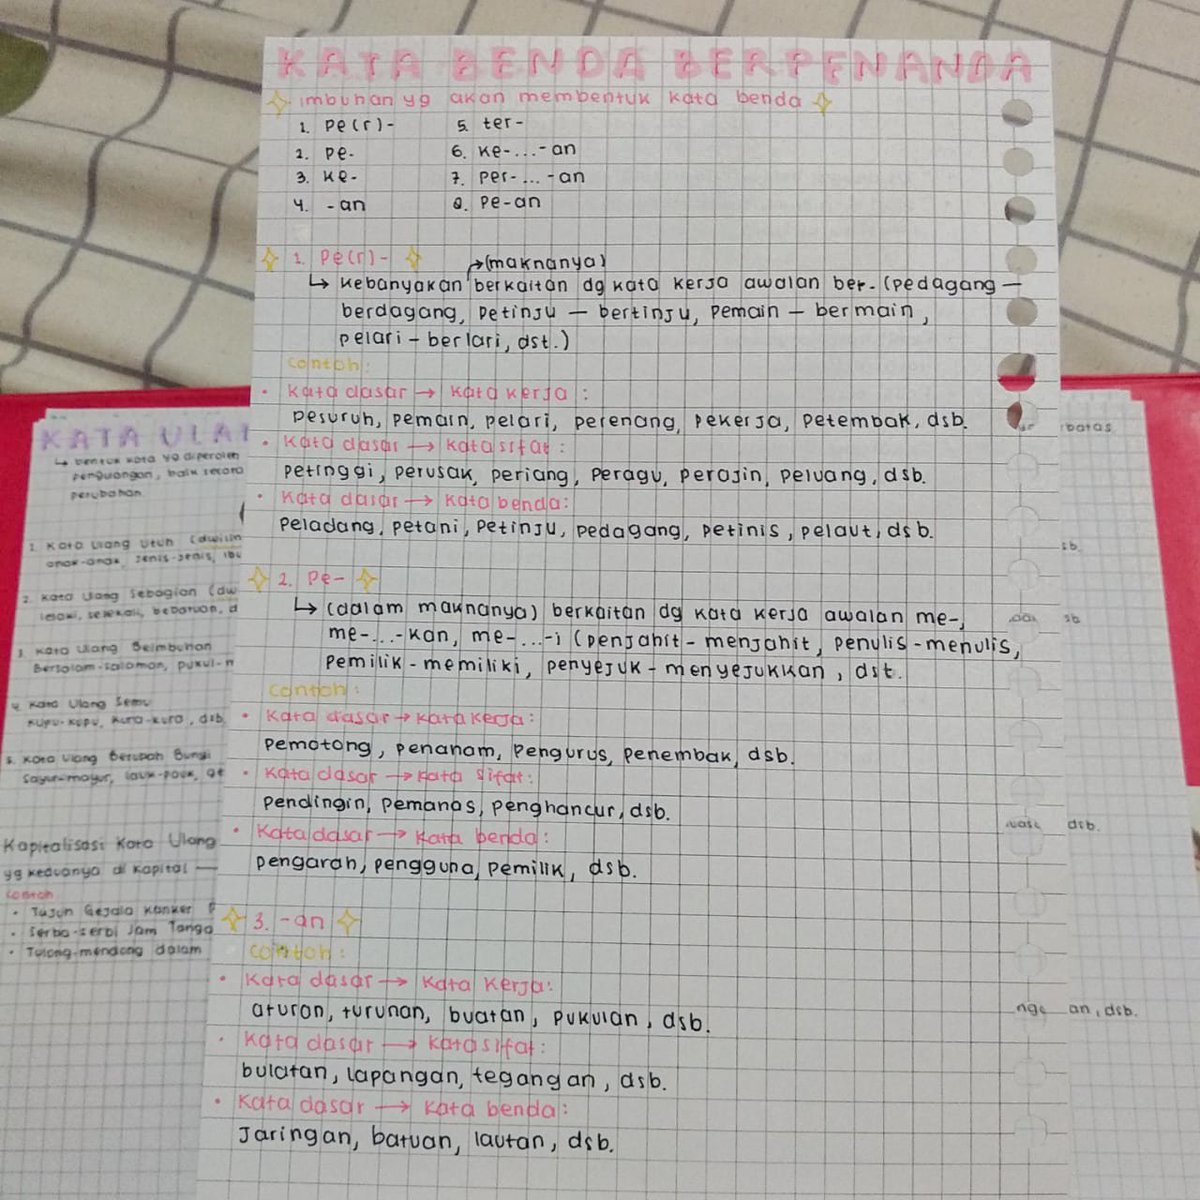 KATA BENDA BERPENANDA
imbuhan yg akan membentuk kata benda
1. pe(r)-
5. ter-
2. pe-
6. ke-...-an
3. ke-
7. per-...-an
4. -an
8. pe-an
1. pe(r)-
→(maknanya)
↳ kebanyakan berkaitan dg kata kerja awalan ber- (pedagang —
berdagang, petinju — bertinju, pemain – bermain,
pelari – berlari, dst.)
contoh:
• kata dasar → kata kerja :
pesuruh, pemain, pelari, perenang, pekerja, petembak, dsb.
• kata dasar → kata sifat :
petinggi, perusak, periang, peragu, perajin, peluang, dsb.
• kata dasar → kata benda:
peladang, petani, petinju, pedagang, petinis, pelaut, dsb.
2. pe-
↳ (dalam maknanya) berkaitan dg kata kerja awalan me-,
me-...-kan, me-...-i (penjahit - menjahit, penulis - menulis,
pemilik - memiliki, penyejuk - menyejukkan, dst.
contoh:
• kata dasar → kata kerja:
pemotong, penanam, pengurus, penembak, dsb.
• kata dasar → kata sifat:
pendingin, pemanas, penghancur, dsb.
• kata dasar → kata benda:
pengarah, pengguna, pemilik, dsb.
3. -an
contoh:
• kata dasar → kata kerja:
aturan, turunan, buatan, pukulan, dsb.
• kata dasar → kata sifat:
bulatan, lapangan, tegangan, dsb.
• kata dasar → kata benda:
Jaringan, batuan, lautan, dsb.
KATA ULA
↳ bentuk kata yg diperoleh
pengulangan, baik secara
perubahan
1. Kata Ulang Utuh (dwilin
anak-anak, jenis-jenis, ibu
2. Kata Ulang Sebagian (dw
lelaki, sesekali, bebatuan, d
3. Kata Ulang Berimbuhan
Bersalam-salaman, pukul-m
4. Kata Ulang Semu
kupu-kupu, kura-kura, dsb.
5. Kata Ulang Berubah Bunyi
Sayur-mayur, lauk-pauk, ge
Kapitalisasi Kata Ulang
yg keduanya di kapital —
contoh
• Tujuh Gejala Kanker P
• Serba-serbi Jam Tanga
• Tolong-menolong dalam
batas
sb.
sb
dsb.
an, dsb.